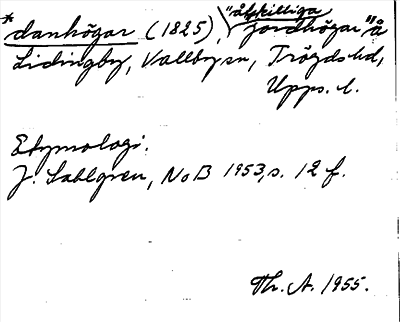 "åtskilliga
* danhögar (1825), jordhögar" å
Lidingby, Vallby sn, Trögds hd,
Upps. l.
Etymologi.
J. Sahlgren, NoB 1953, s. 12 f.
Th. A. 1955.